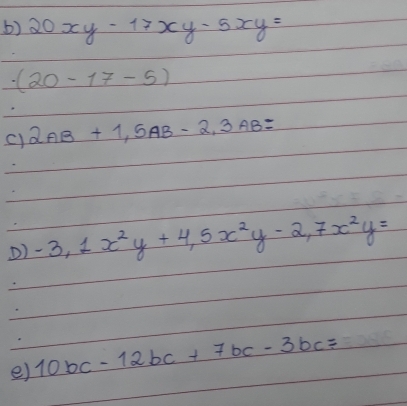 b) 20xy - 17xy - 5xy =
(20 - 17 - 5)
c) 2AB + 1,5AB - 2,3AB =
D) -3,1x²y + 4,5x²y - 2,7x²y =
e) 10bc - 12bc + 7bc - 3bc =